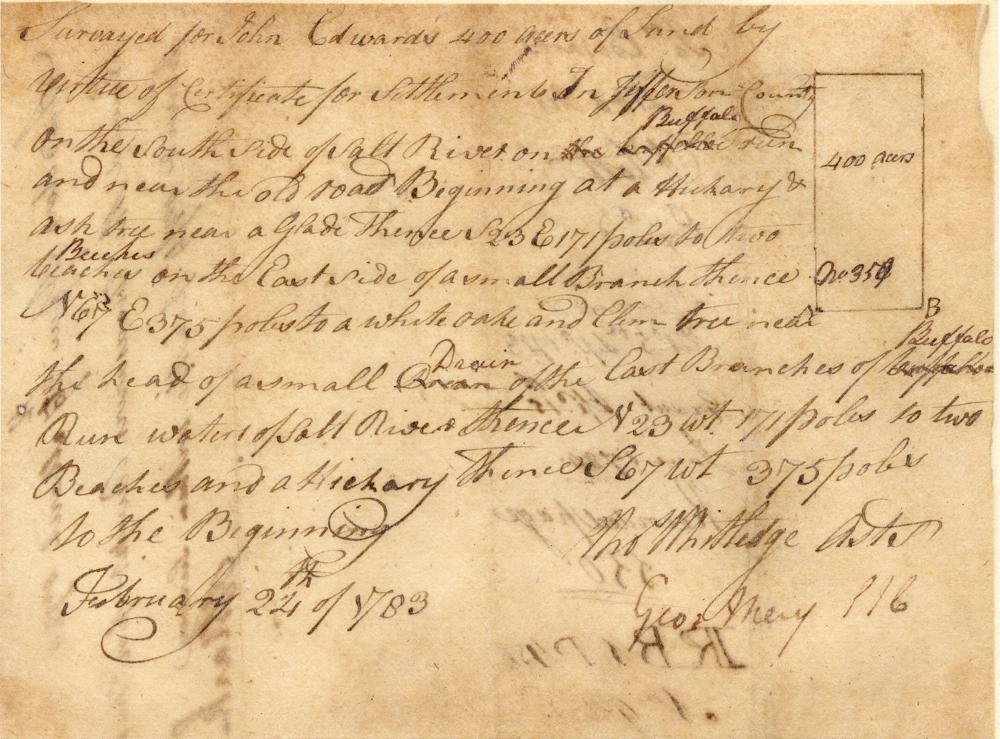 Surveyed for John Edwards 400 acers of Land by
Virtue of Certificate for Settlement In Jefferson County
Buffalo
on the South side of Salt River on the buffaloe run
and near the old road Beginning at a Hickary &
ash tree near a Glade Thence S23E 171 poles to two
Beeches
beaches on the East side of a small Branch thence
N67 E375 poles to a white oake and Elm tree near
Drain
Buffalo
the head of a small Drean of the East Branches of
Run waters of Salt River Thence N23wt 171 poles to two
Beaches and a Hickary Thence S67wt 375 poles
to the Beginning
Tho Whitledge Aste
February 24th of 1783
Geo May
400 acers
No 350
B